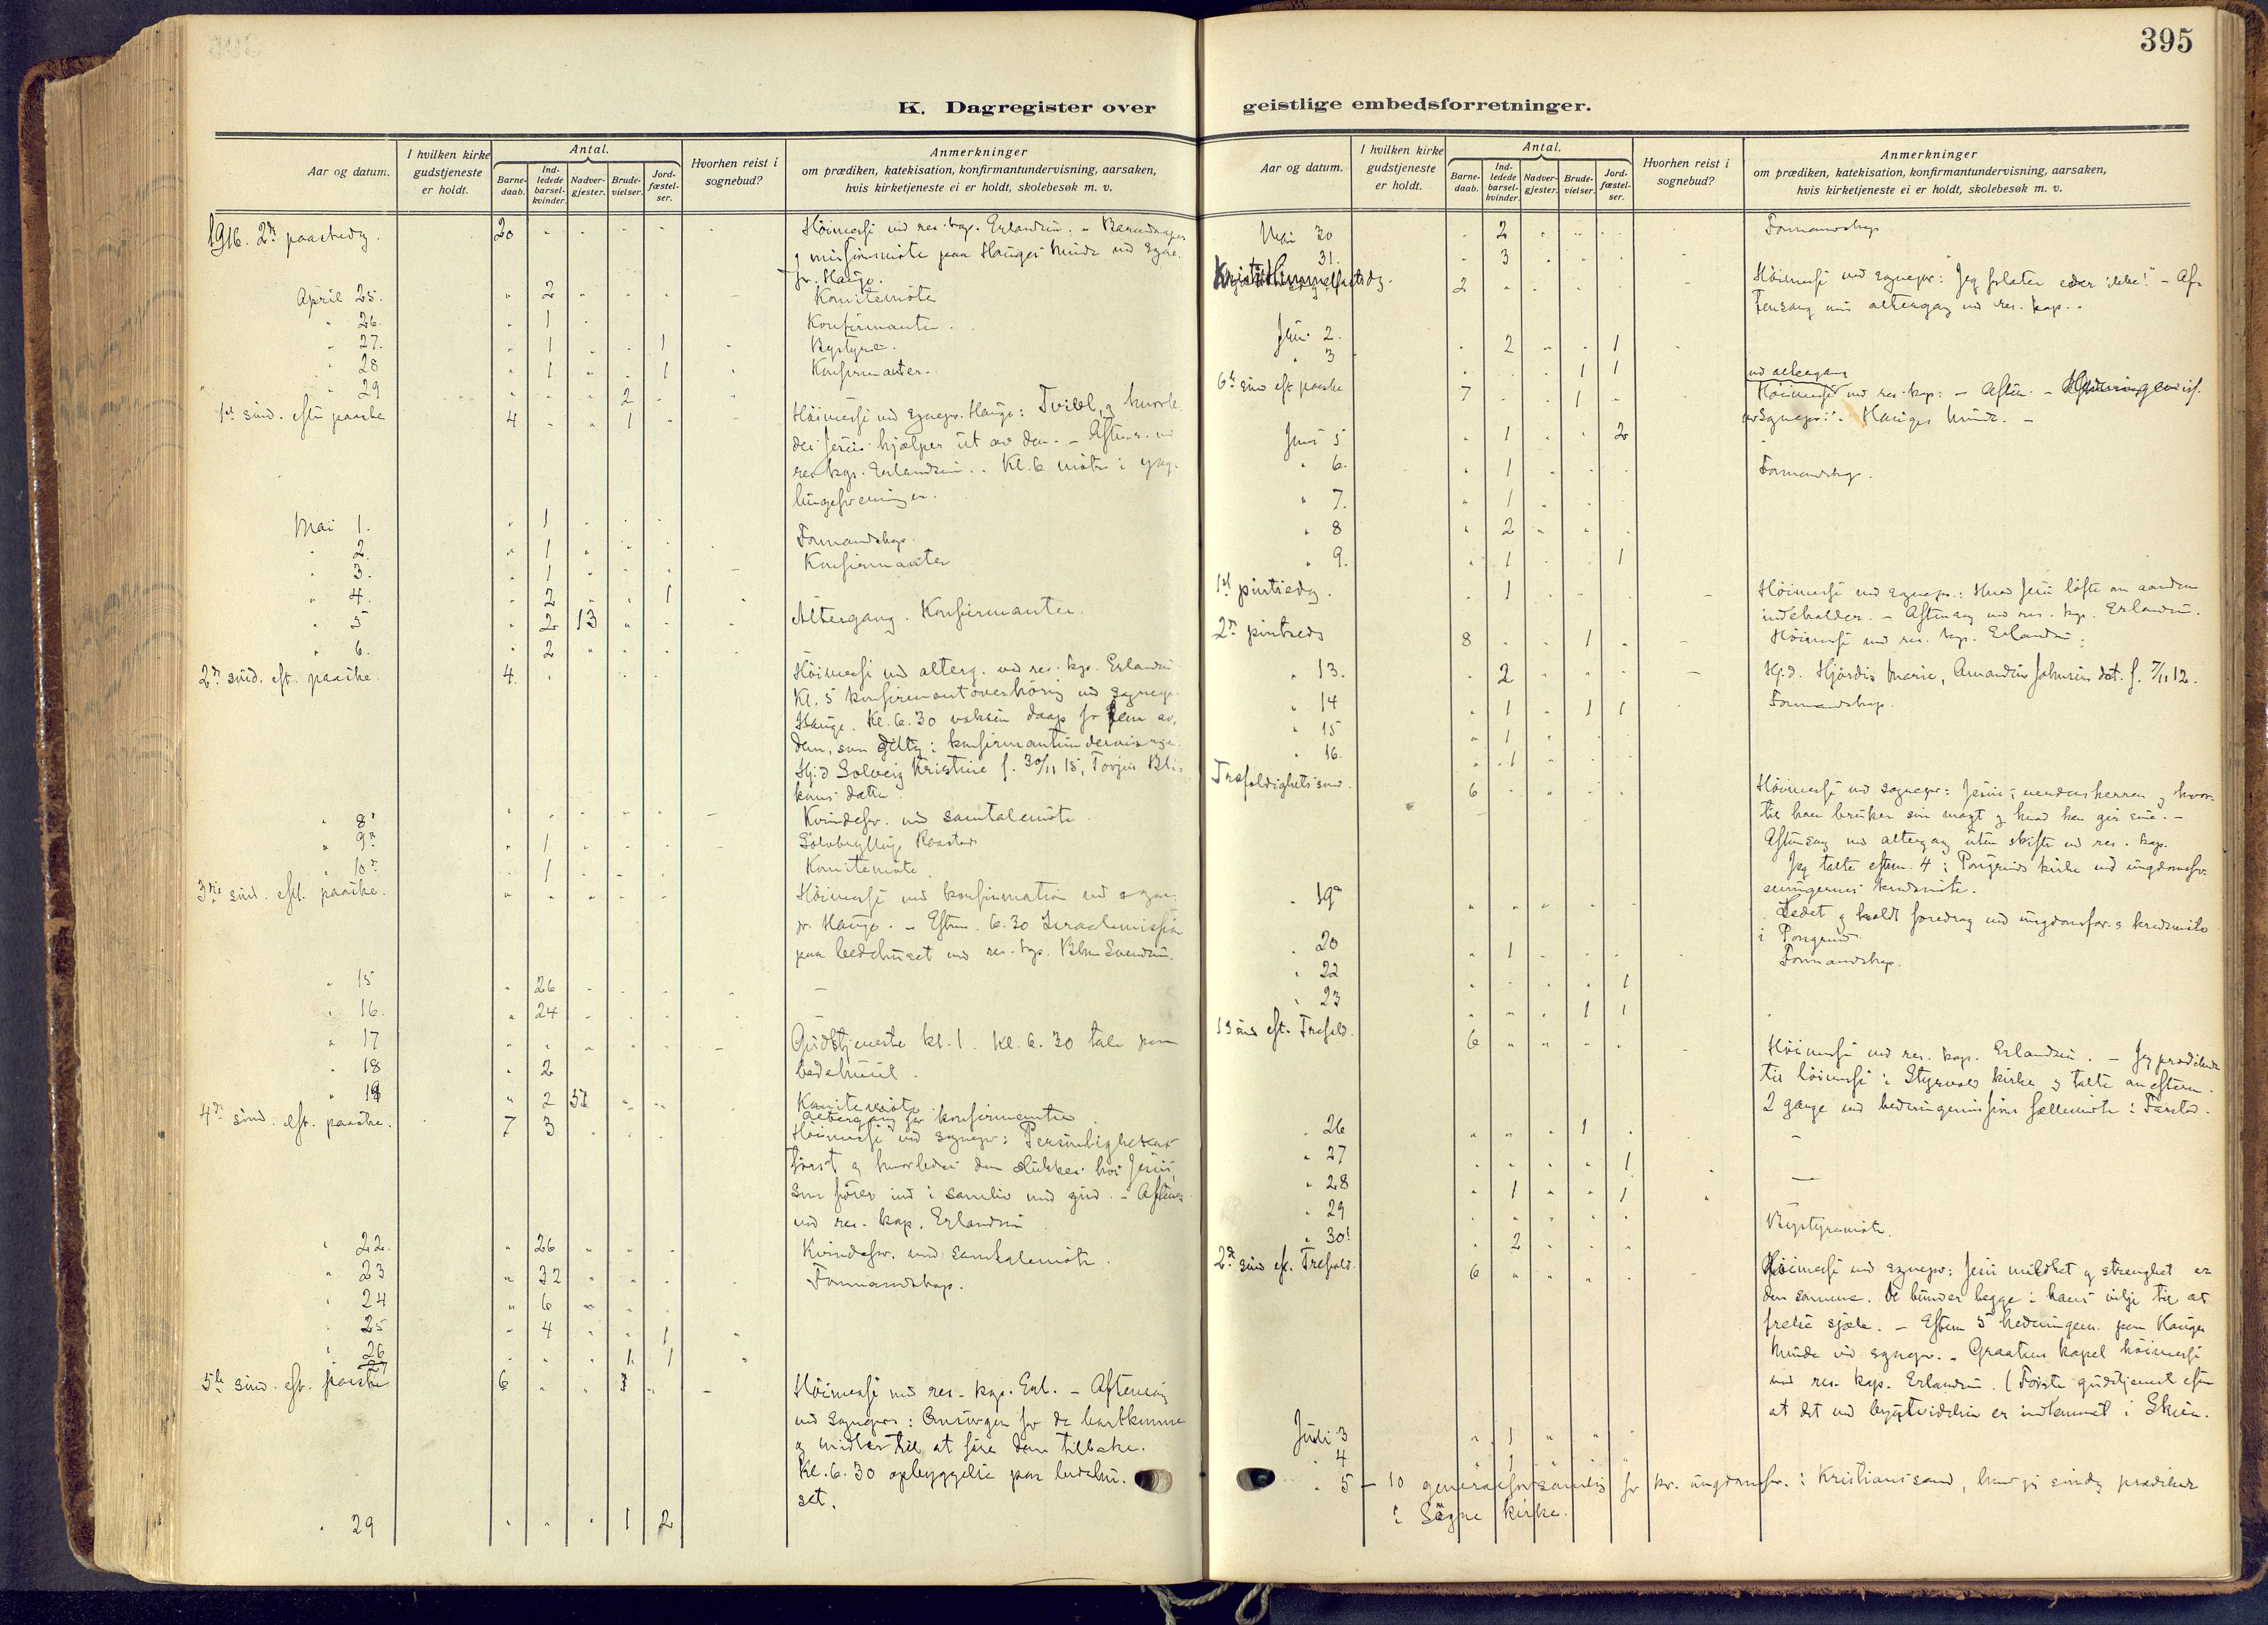 395
K. Dagregister over geistlige embedsforretninger.
Aar og datum. | I hvilken kirke gudstjeneste er holdt. | Antal. Barne-daab. | Ind-ledede barsel-kvinder. | Nadver-gjester. | Brude-vielser. | Jord-fæstel-ser. | Hvorhen reist i sognebud? | Anmerkninger om prædiken, katekisation, konfirmantundervisning, aarsaken, hvis kirketjeneste ei er holdt, skolebesøk m. v.
1916. 2den paaskedag. 20 Höimesse ved res. kap. Erlandsen. -
og missionsmöte paa Hauges Minde ved sogne-
pr. Hauge.
April 25. 2 Komitemöte
" 26. 1 Konfirmanter.
" 27. 1 1 Bystyre.
" 28 1 1 Konfirmanter.
" 29 2
1st sönd. efter paaske 4 1 Höimesse ved sognepr. Hauge: Tvivl, og hvorle-
des Jesus hjælper ut av den. - Aftens. ved
res. kap. Erlandsen. . Kl. 6 möte i yng-
lingeforeningen.
Mai 1. 1
" 2. 1 Formandskap.
" 3. 1 Konfirmanter
" 4. 2 1
" 5 2 13 Altergang. Konfirmanter.
" 6. 2
2den sönd. eft. paaske. 4. Höimesse med alterg. ved res. kap. Erlandsen
Kl. 5 konfirmantoverhöring ved sognepr.
Hauge. Kl. 6.30 voksen daap for fem av
dem, som deltog i konfirmantundervisningen.
Hj.d Solveig Kristine f. 30/11 15, Torjus
datter.
" 8de Kvindefor. med samtalemöte.
" 9de 1 Sölvbryllup
" 10de 1 Komitemöte.
3die sönd. eft. paaske. Höimesse med konfirmation ved sogne-
pr. Hauge. - Eftm. 6.30 Israelsmission
paa bedehuset ved res. kap. Blom Svendsen.
" 15 26 -
" 16. 24 -
" 17 Gudstjeneste kl. 1. Kl. 6.30 tale paa
bedehuset.
" 18 2
" 19 2 51 Komitemöte.
Altergang for konfirmanter
4de sönd. eft. paaske. 7 3 Höimesse ved sognepr: Personlighetens
törst og hvorledes den slukkes hos Jesus,
som förer ind i samliv med gud. - Aftens.
ved res. kap. Erlandsen
" 22. 26 Kvindefor. med samtalemöte.
" 23 32 Formandskap.
" 24 6
" 25 4 1
" 26 1 1
27
5te sönd. eft. paaske 6 1 Höimesse ved res. kap. Erl. - Aftensang
ved sognepr: Omsorgen for de bortkomne
og midler til at före dem tilbake.
Kl. 6.30 opbyggelse paa bedehu-
set.
" 29 1 2
Mai 30 2 Formandskap
" 31. 3
Kristi Himmelfartsdg. 2 Höimesse ved sognepr: "Jeg forlater eder ikke!" - Af-
tensang med altergang ved res. kap.
Juni 2. 2 1
" 3 1 1
6te sönd eft paaske 7 1 med altergang
Höimesse ved res. kap: - Aften. -
ved sognepr. Hauges Minde. -
Juni 5 1 2
" 6. 1 Formandskap.
" 7. 1
" 8 2
" 9. 1 1
1st pintsedg. 1 Höimesse ved sognepr.: Hvad Jesu löfte om aanden
indeholder. - Aftensang ved res. kap. Erlandsen.
2den pintsedg 8 1 Höimesse ved res. kap. Erlandsen.
" 13. 2 Hj.d. Hjördis Marie, Amandus Johnsens dat. f. 7/11 12.
" 14 1 1 1 Formandskap.
" 15 1
" 16. 1
Trefoldighetssönd. 6 Höimesse ved sognepr: Jesus, verdensherren og hvor-
til han bruker sin magt og hvad han gir sine. -
Aftensang med altergang uten skifte ved res. kap.
Jeg talte efterm. 4 i Porsgrunds kirke ved ungdomsfor-
eningernes kredsmöte.
" 19de Ledet og holdt foredrag ved ungdomsfor.s kredsmöte
i Porsgrund.
" 20 1 Formandskap.
" 22 1
" 23 1 1
1 sönd eft. Trefold. 6 Höimesse ved res. kap. Erlandsen. - Jeg prædiket
til höimesse i Styrvolds kirke og talte om efterm.
2 gange ved hedningemissions fællesmöte i Farstad.
" 26 1 -
" 27 1
" 28 1 1 -
" 29 Bystyremöte.
" 30te 2
2den sönd ef. Trefold. 6 Höimesse ved sognepr: Jesu mildhet og strenghet er
den samme. De bunder begge i hans vilje til at
frelse sjæle. - Efterm 5 hedningem. paa Hauges
Minde ved sognepr. - Graatens kapel höimesse
ved res. kap. Erlandsen. (Förste gudstjeneste efter
at det ved byutvidelsen er indlemmet i Skien.
Juli 3 1
" 4 1
" 5 - 10 generalforsamling for kr. ungdomsfor. i Kristianssand, hvor jeg söndag prædiket
i Sögne kirke.